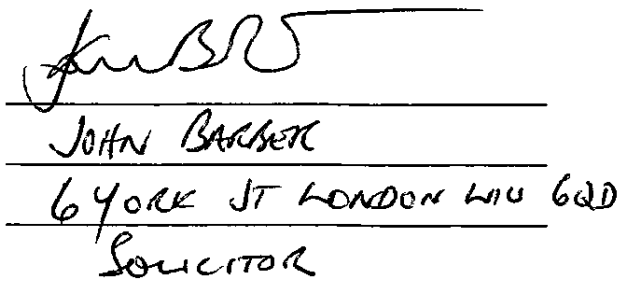 JOHN BARBER
6 YORK ST LONDON W1U 6QD
SOLICITOR